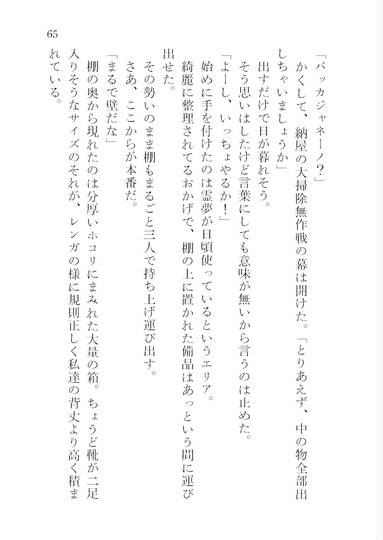 65
「バッカジャネーノ？」
　かくして、納屋の大掃除無作戦の幕は開けた。「とりあえず、中の物全部出
しちゃいましょうか」
　出すだけで日が暮れそう。
　そう思いはしたけど言葉にしても意味が無いから言うのは止めた。
「よーし、いっちょやるか！」
　始めに手を付けたのは霊夢が日頃使っているというエリア。
　綺麗に整理されてるおかげで、棚の上に置かれた備品はあっという間に運び
出せた。
　その勢いのまま棚もまるごと三人で持ち上げ運び出す。
　さあ、ここからが本番だ。
「まるで壁だな」
　棚の奥から現れたのは分厚いホコリにまみれた大量の箱。ちょうど靴が二足
入りそうなサイズのそれが、レンガの様に規則正しく私達の背丈より高く積ま
れている。